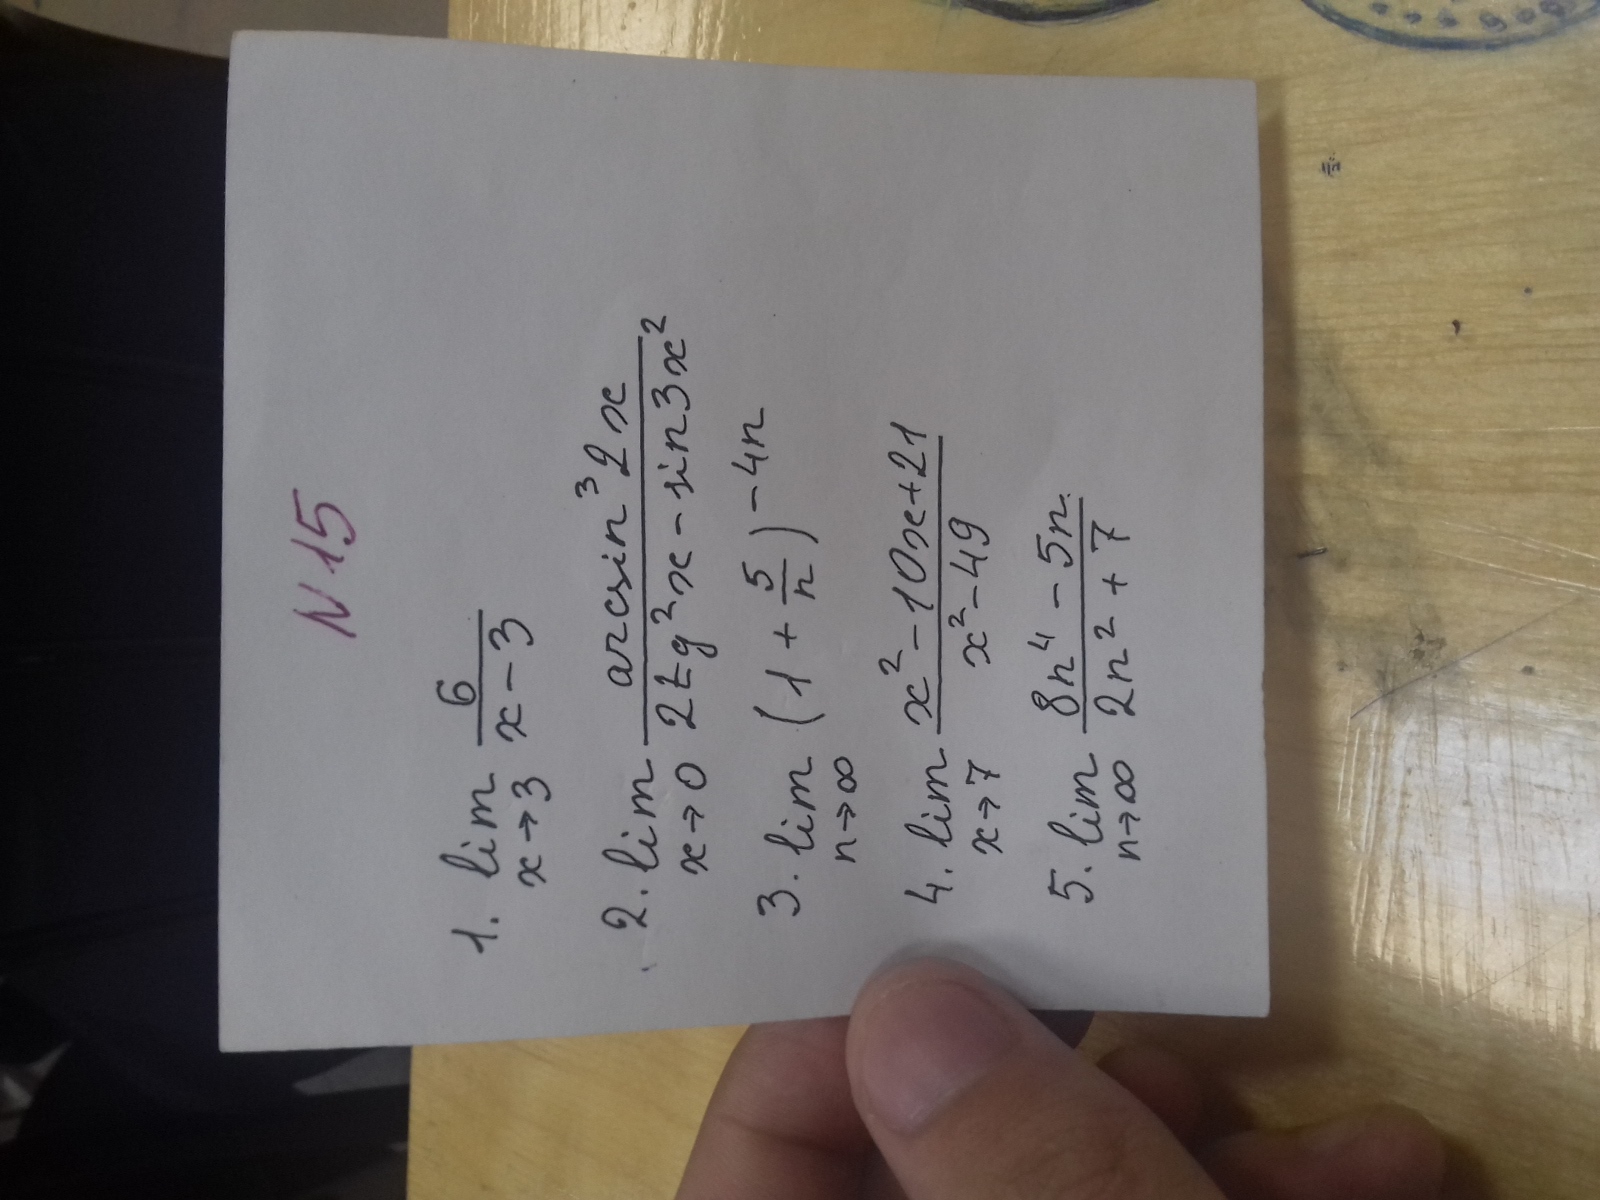 N 15
1. lim 6/(x-3)
x→3
2. lim (arcsin³2x)/(2tg²x - sin3x²)
x→0
3. lim (1 + 5/n)^(-4n)
n→∞
4. lim (x² - 10x + 21)/(x² - 49)
x→7
5. lim (8n⁴ - 5n)/(2n² + 7)
n→∞